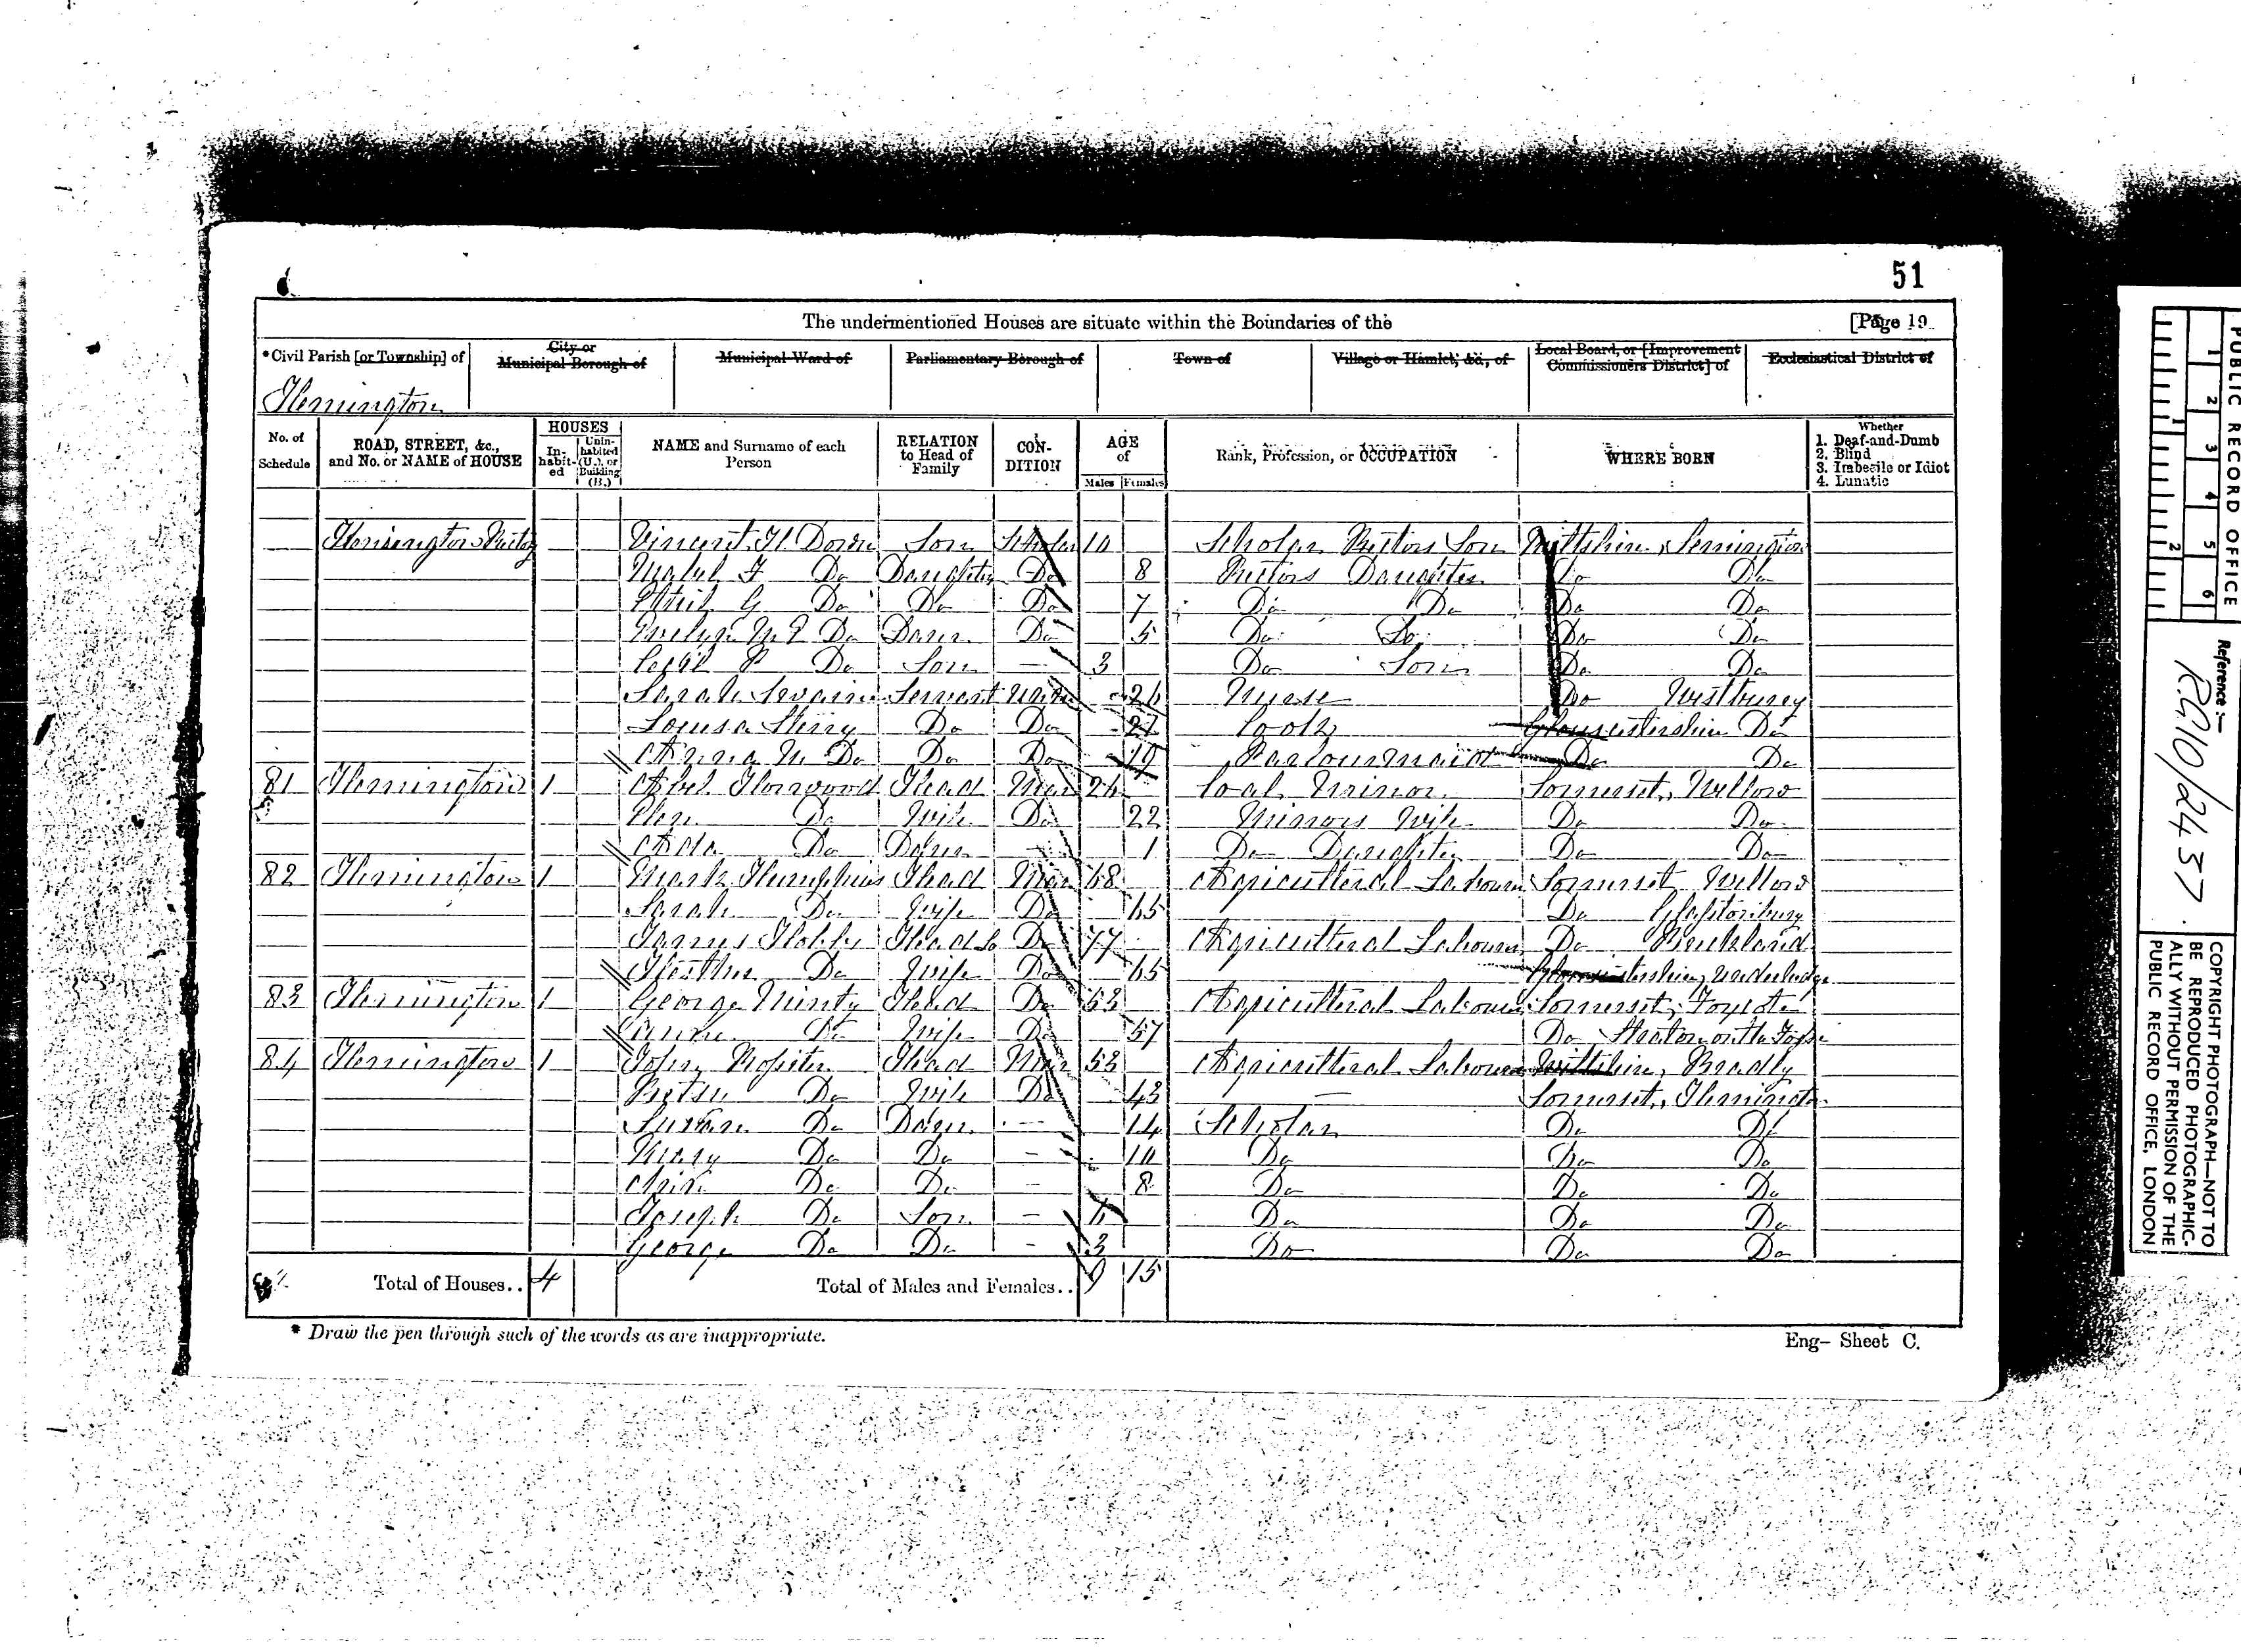 51
The undermentioned Houses are situate within the Boundaries of the [Page 19
*Civil Parish [or Township] of City or Municipal Borough of Municipal Ward of Parliamentary Borough of Town of Village or Hamlet, &c., of Local Board, or [Improvement Commissioners District] of Ecclesiastical District of
Hemington
No. of Schedule ROAD, STREET, &c., and No. or NAME of HOUSE HOUSES Inhabited Uninhabited (U.), or Building (B.) NAME and Surname of each Person RELATION to Head of Family CONDITION AGE of Males Females Rank, Profession, or OCCUPATION WHERE BORN Whether 1. Deaf-and-Dumb 2. Blind 3. Imbecile or Idiot 4. Lunatic
Hemington Vincent H Son Scholar 10 Scholar Rectors Son Wiltshire, Semington
Do Daughter Do 8 Rectors Daughter Do Do
G Do Do Do 7 Do Do Do Do
Evelyn Do Daur Do 5 Do Do Do Do
Cecil P Do Son — 3 Do Son Do Do
Sarah Servant 26 Nurse Do Westbury
Louisa Do Do 27 Cook Gloucestershire Do
Do Do Do 19 Parlourmaid Do Do
81 Hemington 1 Abel Horwood Head Mar 26 Coal Minor Somerset, Mellow
Do Wife Do 22 Minors Wife Do Do
Ada Do Daur 1 Do Daughter Do Do
82 Hemington 1 Mark Humphries Head Mar 68 Agricultural Labourer Somerset, Wellow
Sarah Do Wife Do 65 Do Glastonbury
James Head Do 77 Agricultural Labourer Do Buckland
Hesther Do Wife Do 65
83 Hemington 1 George Minty Head Do 53 Agricultural Labourer Somerset, Foxcote
Do Wife Do 57 Do Stratton on the Fosse
84 Hemington 1 John Rossiter Head Mar 53 Agricultural Labourer Wiltshire, Bradly
Betsy Do Wife Do 43 — Somerset, Hemington
Do Daur — 14 Scholar Do Do
Mary Do Do — 10 Do Do Do
Do Do — 8 Do Do Do
Joseph Do Son — 6 Do Do Do
George Do Do — 3 Do Do Do
Total of Houses.. 4 Total of Males and Females.. 9 15
* Draw the pen through such of the words as are inappropriate. Eng- Sheet C.
PUBLIC RECORD OFFICE
1 2 3 4 5 6
1 2
Reference:—
RG10/2437
COPYRIGHT PHOTOGRAPH—NOT TO
BE REPRODUCED PHOTOGRAPHIC-
ALLY WITHOUT PERMISSION OF THE
PUBLIC RECORD OFFICE, LONDON